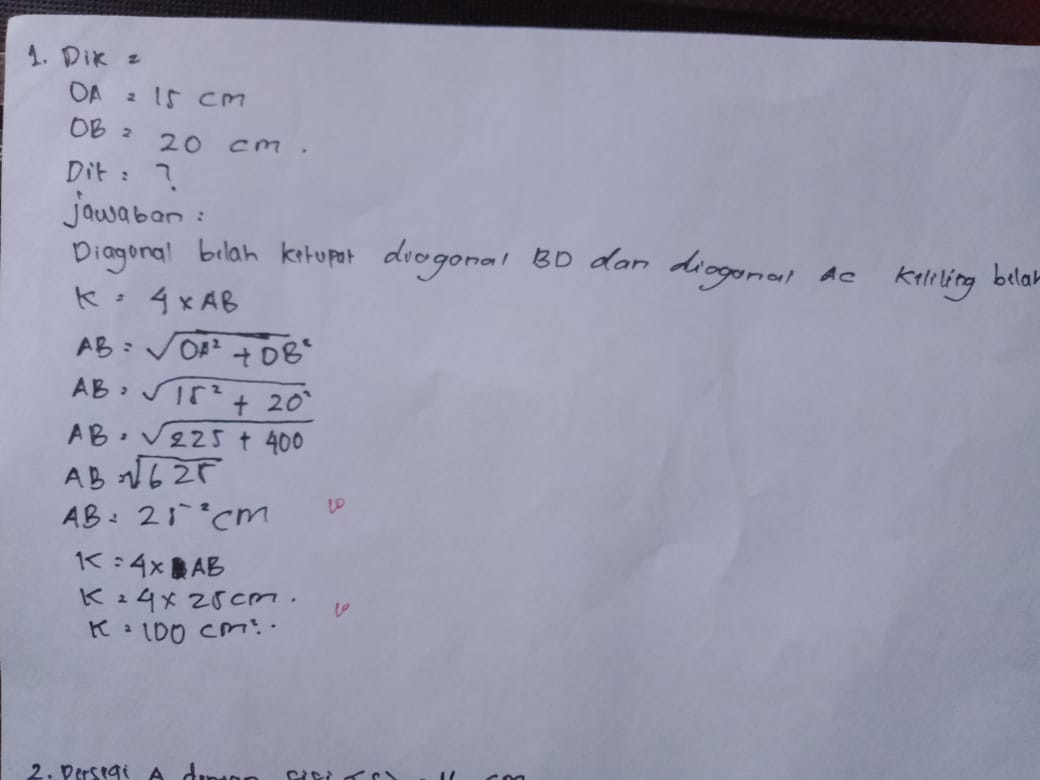 1. Dik =
OA = 15 cm
OB = 20 cm.
Dit : ?
jawaban :
Diagonal belah ketupat diagonal BD dan diagonal AC keliling belah
K = 4 x AB
AB = √OA² + OB²
AB = √15² + 20²
AB = √225 + 400
AB = √625
AB = 25² cm
K = 4x AB
K = 4 x 25 cm.
K = 100 cm².
2. Persegi A dengan sisi